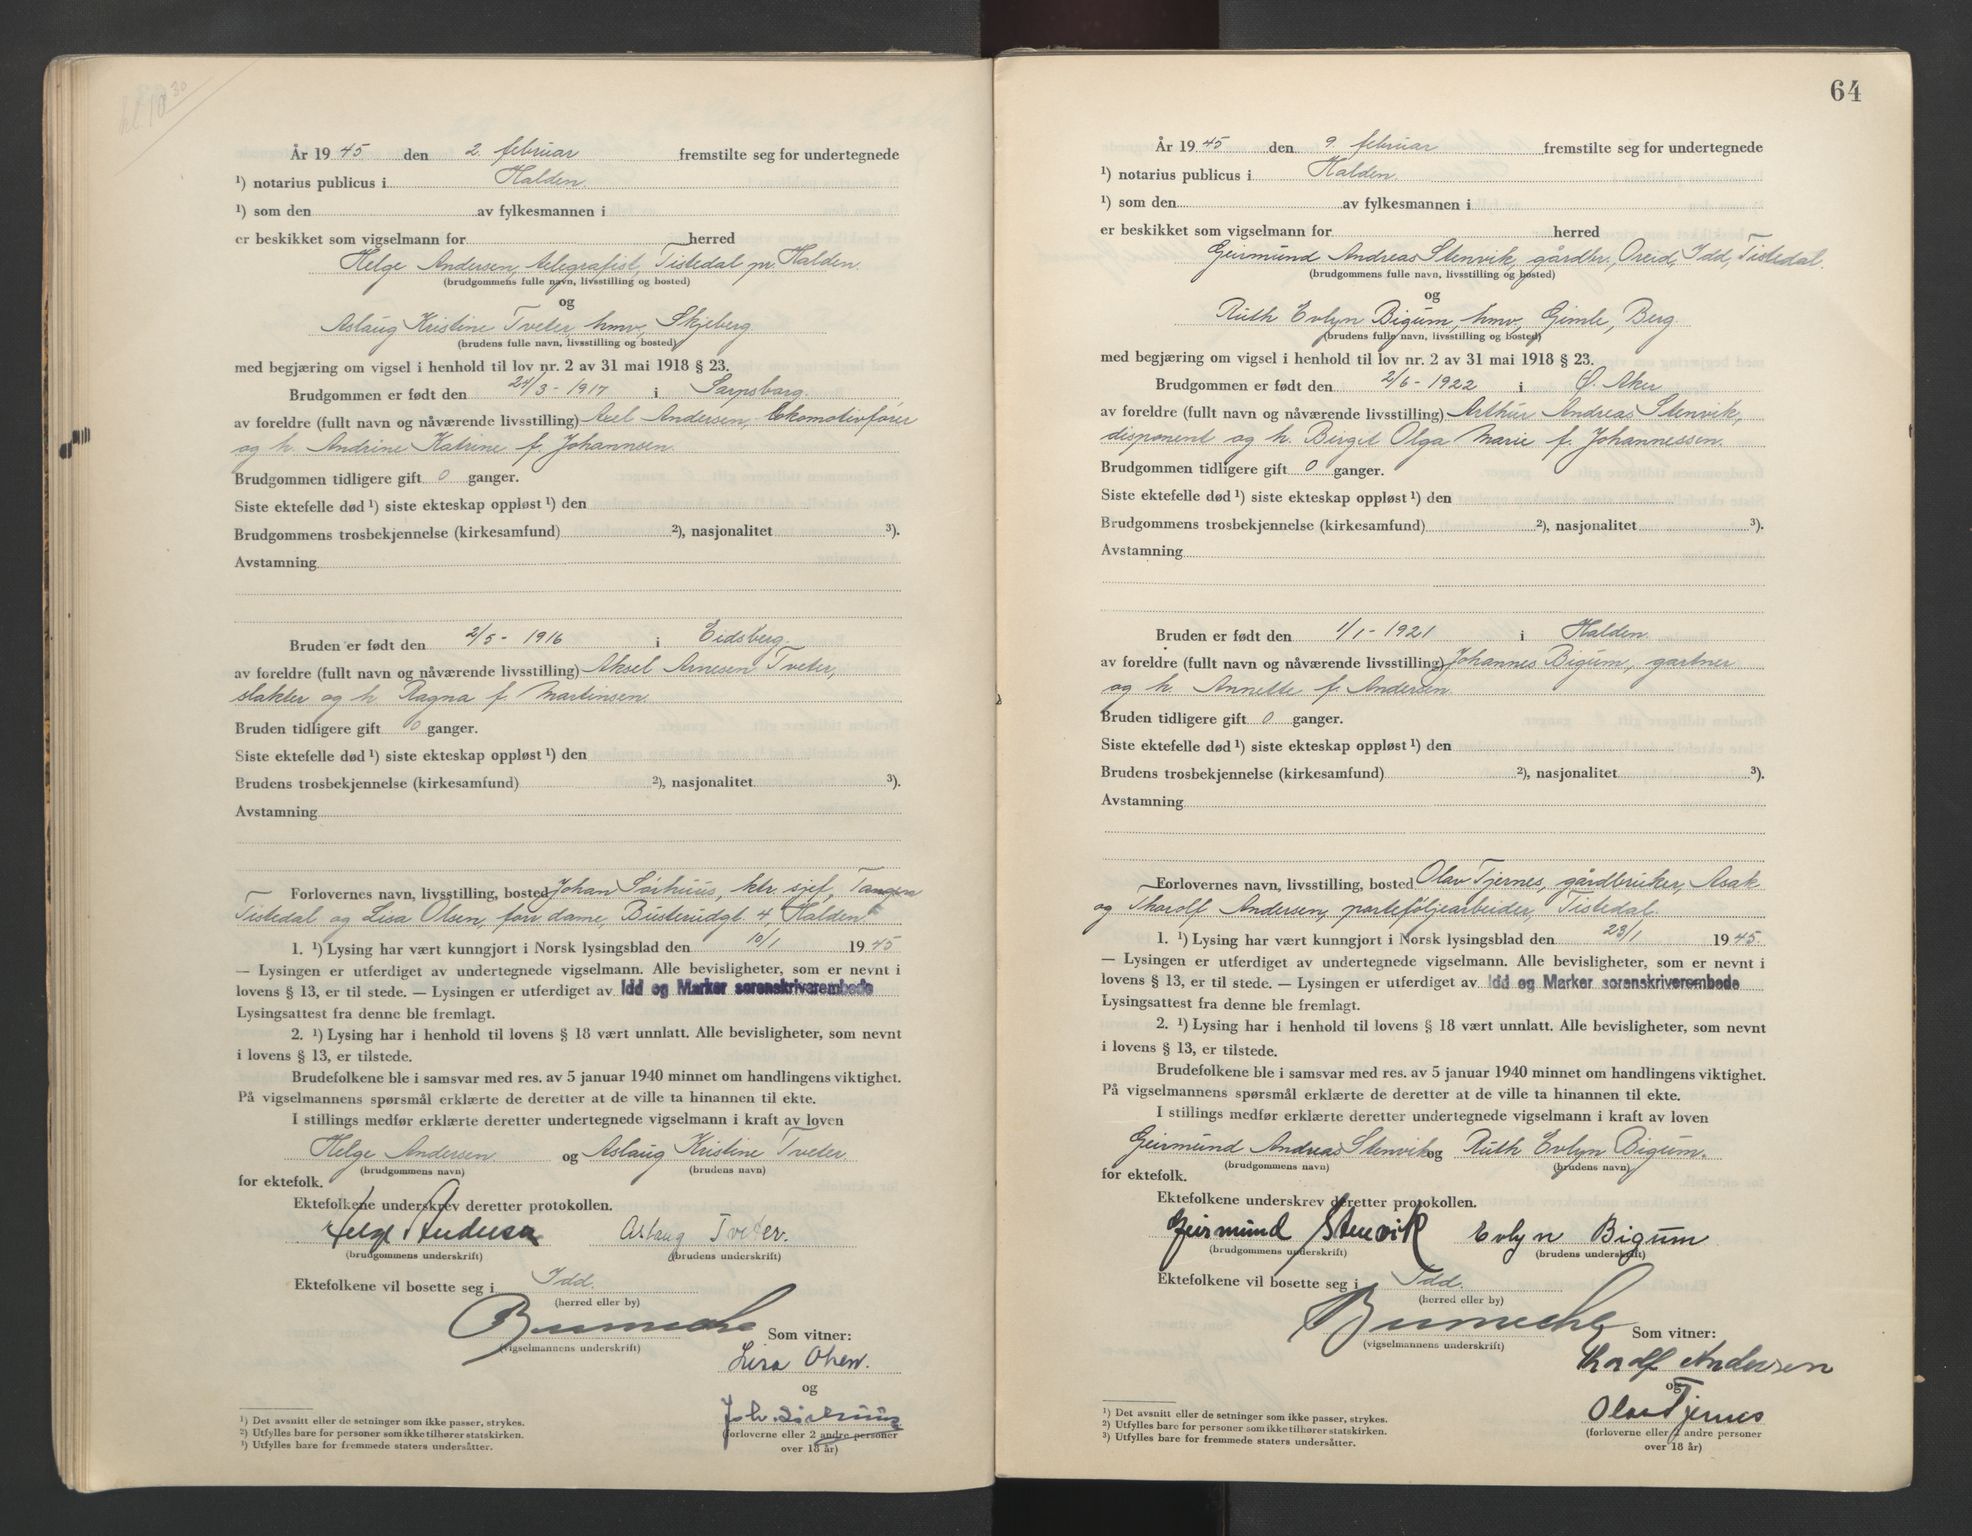 kl. 10 30
År 1945 den 2. februar fremstilte seg for undertegnede
¹) notarius publicus i Halden
¹) som den av fylkesmannen i
er beskikket som vigselmann for herred
Helge Andersen, telegrafist, Tistedal pr. Halden.
(brudgommens fulle navn, livsstilling og bosted)
og
Aslaug Kristine Tveter, hmv, Skjeberg
(brudens fulle navn, livsstilling og bosted)
med begjæring om vigsel i henhold til lov nr. 2 av 31 mai 1918 § 23.
Brudgommen er født den 24/3 - 1917 i Sarpsborg.
av foreldre (fullt navn og nåværende livsstilling) Axel Andersen, lokomotivfører
og h. Andrine Katrine f. Johannsen.
Brudgommen tidligere gift 0 ganger.
Siste ektefelle død¹) siste ekteskap oppløst¹) den
Brudgommens trosbekjennelse (kirkesamfund) ²), nasjonalitet ³).
Avstamning
Bruden er født den 2/5 - 1916 i Eidsberg.
av foreldre (fullt navn og nåværende livsstilling) Aksel Arnesen Tveter,
slakter og h. Ragna f. Martinsen.
Bruden tidligere gift 0 ganger.
Siste ektefelle død¹) siste ekteskap oppløst¹) den
Brudens trosbekjennelse (kirkesamfund) ²), nasjonalitet ³).
Avstamning
Forlovernes navn, livsstilling, bosted Johan Sørhuus, ktr. sjef,
Tistedal og Lisa Olsen, forr.dame, Busterudgt. 4, Halden
1. ¹) Lysing har vært kunngjort i Norsk lysingsblad den 10/1 1945
— Lysingen er utferdiget av undertegnede vigselmann. Alle bevisligheter, som er nevnt i
lovens § 13, er til stede. — Lysingen er utferdiget av Idd og Marker sorenskriverembede
Lysingsattest fra denne ble fremlagt.
2. ¹) Lysing har i henhold til lovens § 18 vært unnlatt. Alle bevisligheter, som nevnt
i lovens § 13, er tilstede.
Brudefolkene ble i samsvar med res. av 5 januar 1940 minnet om handlingens viktighet.
På vigselmannens spørsmål erklærte de deretter at de ville ta hinannen til ekte.
I stillings medfør erklærte deretter undertegnede vigselmann i kraft av loven
Helge Andersen og Aslaug Kristine Tveter
(brudgommens navn) (brudens navn)
for ektefolk.
Ektefolkene underskrev deretter protokollen.
Helge Andersen Aslaug Tveter.
(brudgommens underskrift) (brudens underskrift)
Ektefolkene vil bosette seg i Idd.
(herred eller by)
Som vitner:
(vigselmannens underskrift)
Lisa Olsen.
og
Joh. Sørhuus
(forloverne eller 2 andre personer
over 18 år)
¹) Det avsnitt eller de setninger som ikke passer, strykes.
²) Utfylles bare for personer som ikke tilhører statskirken.
³) Utfylles bare for fremmede staters undersåtter.
64
År 1945 den 9. februar fremstilte seg for undertegnede
¹) notarius publicus i Halden
¹) som den av fylkesmannen i
er beskikket som vigselmann for herred
Geirmund Andreas Stenvik, gårdbr., Oreid, Idd, Tistedal.
(brudgommens fulle navn, livsstilling og bosted)
og
Ruth Evlyn Bigum, hmv, Gimle, Berg
(brudens fulle navn, livsstilling og bosted)
med begjæring om vigsel i henhold til lov nr. 2 av 31 mai 1918 § 23.
Brudgommen er født den 2/6 - 1922 i Ø. Aker
av foreldre (fullt navn og nåværende livsstilling) Arthur Andreas Stenvik,
disponent og h. Birgit Olga Marie f. Johannessen.
Brudgommen tidligere gift 0 ganger.
Siste ektefelle død¹) siste ekteskap oppløst¹) den
Brudgommens trosbekjennelse (kirkesamfund) ²), nasjonalitet ³).
Avstamning
Bruden er født den 1/1 - 1921 i Halden
av foreldre (fullt navn og nåværende livsstilling) Johannes Bigum, gartner
og h. Annette f. Andersen
Bruden tidligere gift 0 ganger.
Siste ektefelle død¹) siste ekteskap oppløst¹) den
Brudens trosbekjennelse (kirkesamfund) ²), nasjonalitet ³).
Avstamning
Forlovernes navn, livsstilling, bosted Olav Tjernes, gårdbruker, Asak
og Thorolf Andersen, porteføljearbeider, Tistedal.
1. ¹) Lysing har vært kunngjort i Norsk lysingsblad den 23/1 1945.
— Lysingen er utferdiget av undertegnede vigselmann. Alle bevisligheter, som er nevnt i
lovens § 13, er til stede. — Lysingen er utferdiget av Idd og Marker sorenskriverembede
Lysingsattest fra denne ble fremlagt.
2. ¹) Lysing har i henhold til lovens § 18 vært unnlatt. Alle bevisligheter, som nevnt
i lovens § 13, er tilstede.
Brudefolkene ble i samsvar med res. av 5 januar 1940 minnet om handlingens viktighet.
På vigselmannens spørsmål erklærte de deretter at de ville ta hinannen til ekte.
I stillings medfør erklærte deretter undertegnede vigselmann i kraft av loven
Geirmund Andreas Stenvik og Ruth Evlyn Bigum.
(brudgommens navn) (brudens navn)
for ektefolk.
Ektefolkene underskrev deretter protokollen.
Geirmund Stenvik Evlyn Bigum
(brudgommens underskrift) (brudens underskrift)
Ektefolkene vil bosette seg i Idd.
(herred eller by)
Som vitner:
(vigselmannens underskrift)
Thorolf Andersen
og
Olav Tjernes
(forloverne eller 2 andre personer
over 18 år)
¹) Det avsnitt eller de setninger som ikke passer, strykes.
²) Utfylles bare for personer som ikke tilhører statskirken.
³) Utfylles bare for fremmede staters undersåtter.